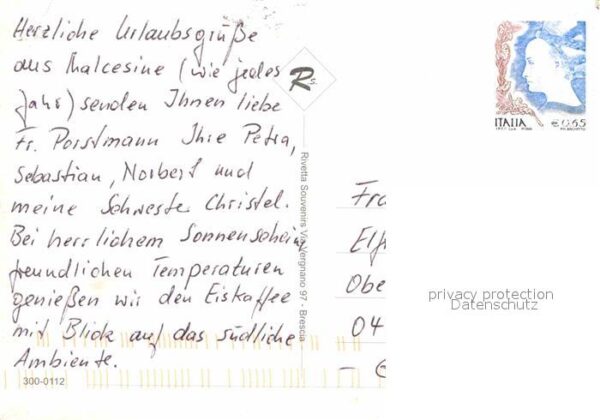 Herzliche Urlaubsgrüße
aus Malcesine (wie jedes
Jahr) senden Ihnen liebe
Fr. Porstmann Ihre Petra,
Sebastian, Norbert und
meine Schwester Christel.
Bei herrlichem Sonnenschein,
freundlichen Temperaturen
genießen wir den Eiskaffee
mit Blick auf das südliche
Ambiente.
300-0112
R
Rivetta Souvenirs Via Vergnano 97 - Brescia
ITALIA € 0,65
Fra
Elf
Obe
04
privacy protection
Datenschutz